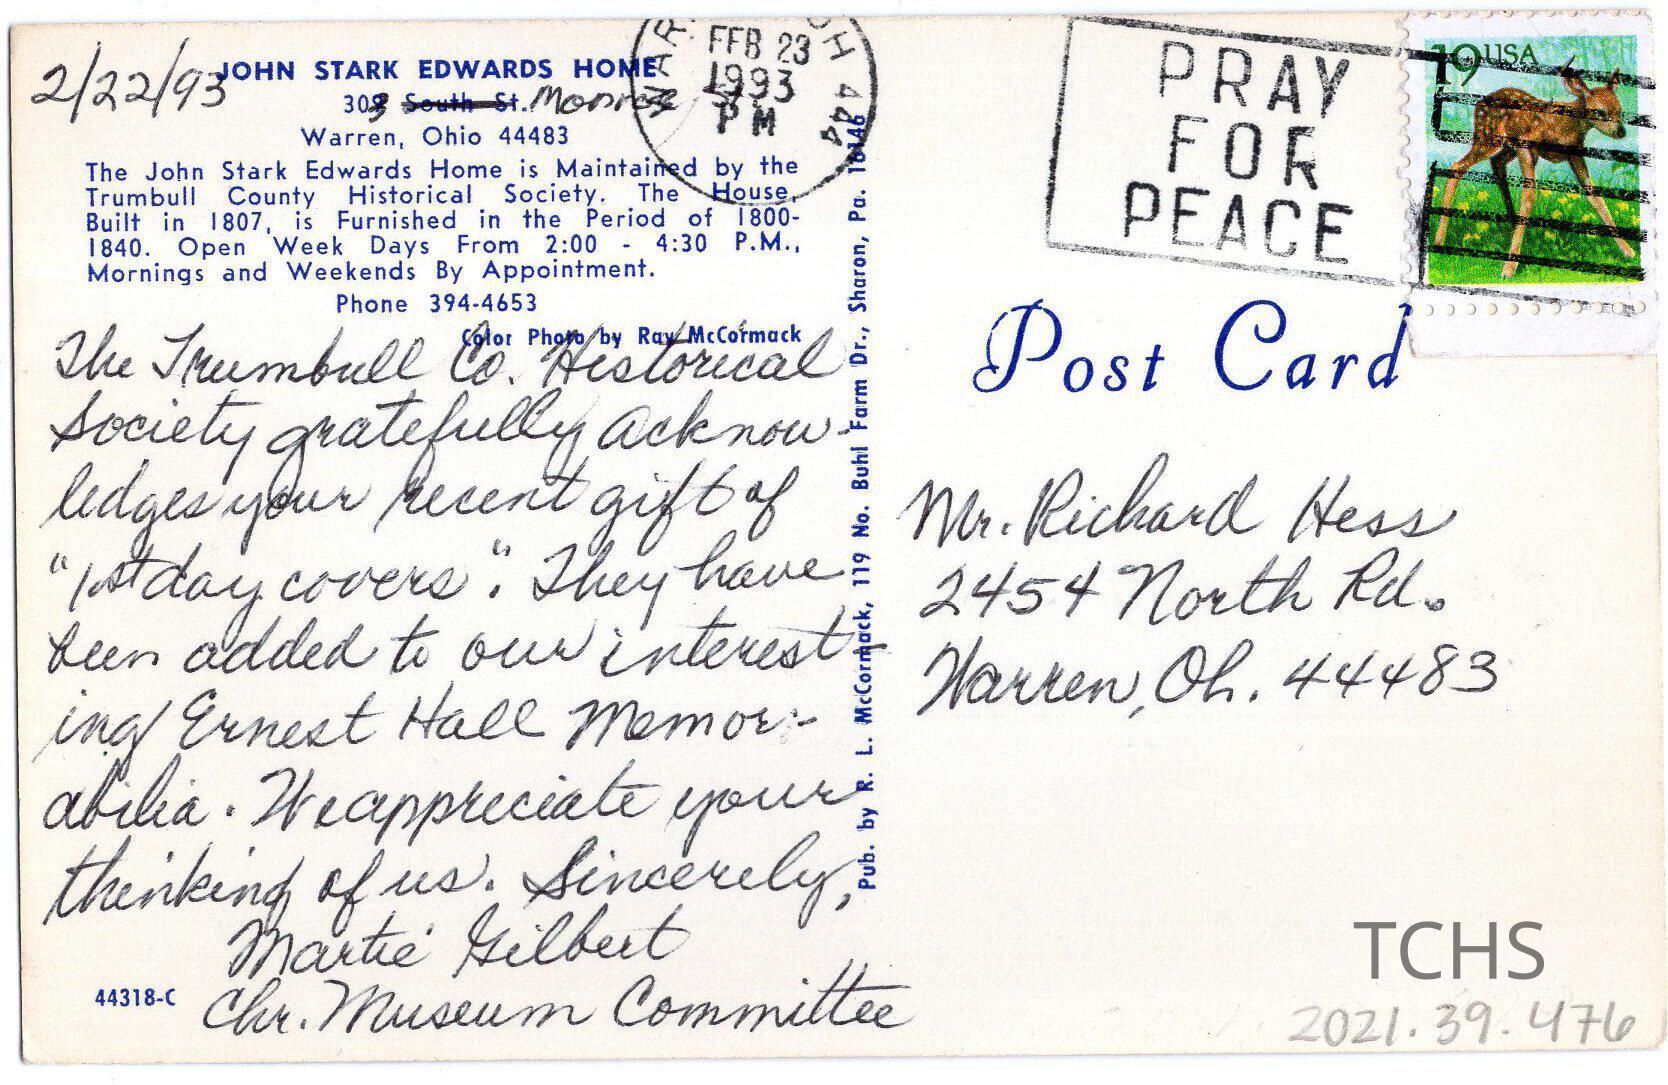 2/22/93
JOHN STARK EDWARDS HOME
303 South St. Monroe
Warren, Ohio 44483
The John Stark Edwards Home is Maintained by the
Trumbull County Historical Society. The House,
Built in 1807, is Furnished in the Period of 1800-
1840. Open Week Days From 2:00 - 4:30 P.M.,
Mornings and Weekends By Appointment.
Phone 394-4653
Color Photo by Ray McCormack
The Trumbull Co. Historical
Society gratefully acknow-
ledges your recent gift of
"1st day covers". They have
been added to our interest-
ing Ernest Hall Memor-
abilia. We appreciate your
thinking of us. Sincerely,
Martie Gilbert
Chr. Museum Committee
44318-C
Pub. by R. L. McCormack, 119 No. Buhl Farm Dr., Sharon, Pa. 16146
FEB 23
1993
PM
444
PRAY
FOR
PEACE
19 USA
Post Card
Mr. Richard Hess
2454 North Rd.
Warren, Oh. 44483
TCHS
2021.39.476